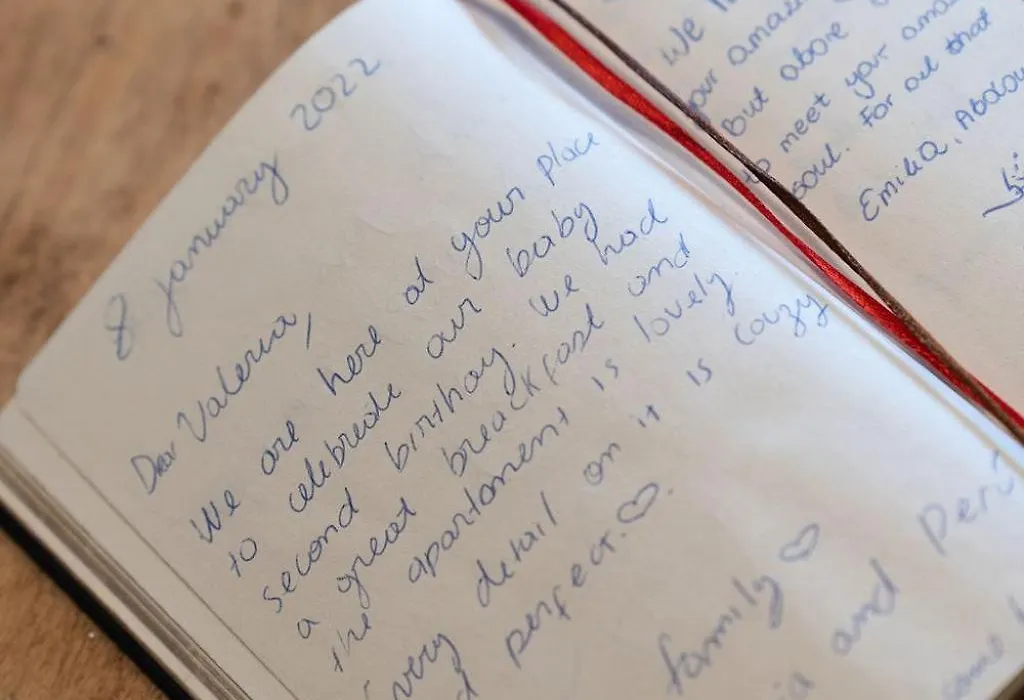 8 january 2022
Dear Valeria,
We are here at your place
to celebrade our baby
second birthay. We had
a great breackfast and
the apartoment is lovely.
very detail on it is couzy
perfect. ♡
family ♡
and Perú
We
your
but above
to meet your
soul. For all that
Emilia, Abdou